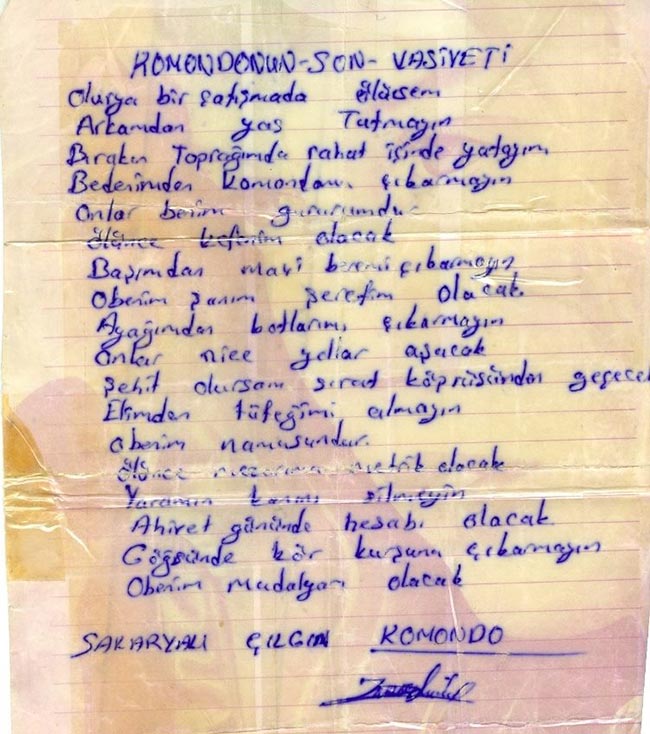 KOMONDONUN-SON-VASİYETİ
Olurya bir çatışmada ölürsem
Arkamdan yas Tutmayın
Bırakın Toprağımda rahat içinde yatayım
Bedenimden komandomu çıkarmayın
Onlar benim gururumdur
Ölünce kefinim olacak
Başımdan mavi beremi çıkarmayın
Obenim şanım şerefim olacak
Ayağımdan botlarımı çıkarmayın
Onlar nice yollar aşacak
Şehit olursam sırat köprüsünden geçecek
Elimden tüfeğimi almayın
obenim namusundur.
Ölünce mezarıma metrik olacak
Yaramın kanını silmeyin
Ahiret gününde hesabı olacak
Göğsünde kör kurşunu çıkarmayın
Obenim madalyam olacak
SAKARYALI ÇILGIN KOMONDO